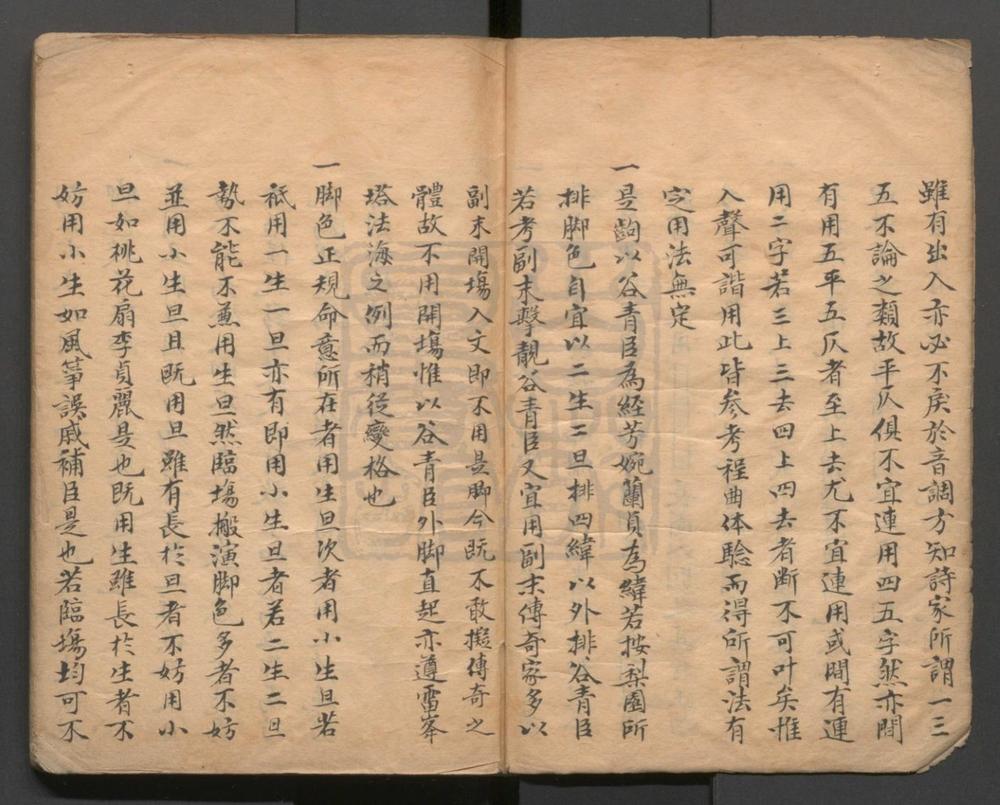 雖有出入亦必不戾於音調方知詩家所謂一三
五不論之類故平仄俱不宜連用四五字然亦間
有用五平五仄者至上去尤不宜連用或間有連
用二字若三上三去四上四去者斷不可叶矣惟
入聲可諧用此皆参考程曲体驗而得所謂法有
定用法無定
一是齣以谷青臣為経芳婉蘭貞為緯若按梨園所
排脚色自宜以二生二旦排四緯以外排谷青臣
若考副末擊靚谷青臣又宜用副末傳奇家多以
副末開塲入文即不用是脚今既不敢擬傳奇之
體故不用開塲惟以谷青臣外脚直起亦遵雷峯
塔法海之例而稍從變格也
一脚色正規命意所在者用生旦次者用小生旦若
祗用一生一旦亦有即用小生旦者若二生二旦
勢不能不兼用生旦然臨塲搬演脚色多者不妨
並用小生旦且既用旦雖有長於旦者不妨用小
旦如桃花扇李貞麗是也既用生雖長於生者不
妨用小生如風箏誤戚補臣是也若臨塲均可不